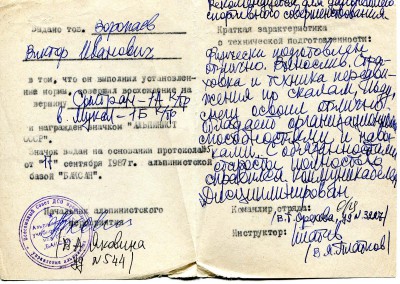 Выдано тов. Воропаев
Виктор Иванович
в том, что он выполнил установлен-
ные нормы, совершил восхождение на
вершину Сулгран - 1А к/тр
в. Мукал - 1Б к/тр
и награжден значком "АЛЬПИНИСТ
СССР".
Значок выдан на основании протокола
от "11" сентября 1987г. альпинистской
базой "БАКСАН".
Начальник альпинистского
В.А. Яковина
уд N 544)
спортивного совершенствования
Краткая характеристика
о технической подготовленности:
Физически подготовлен
отлично. Вынослив. Стра-
ховка и техника передви-
жения по скалам, льду,
снегу освоил отлично.
Обладает организаторскими
способностями и навы-
ками. С обязанностями
старосты полностью
справился. Коммуникабелен
Дисциплинирован
Командир отряда:
(В.Г. Орехова, уд N 3227)
Инструктор:
(В.Я. Платонов)